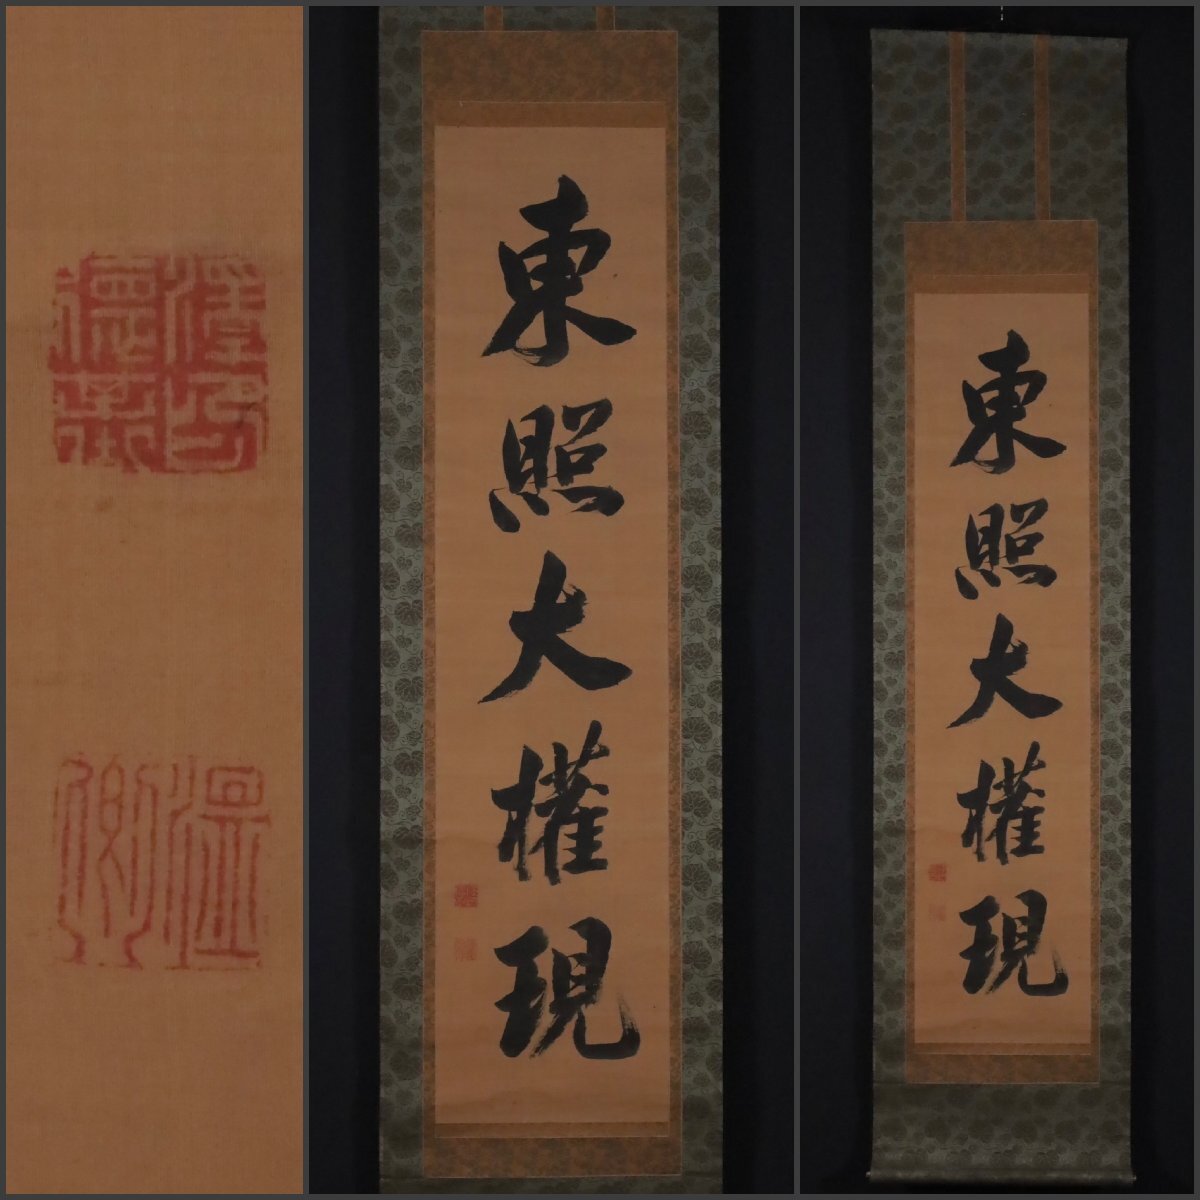 東照大權現
東照大權現